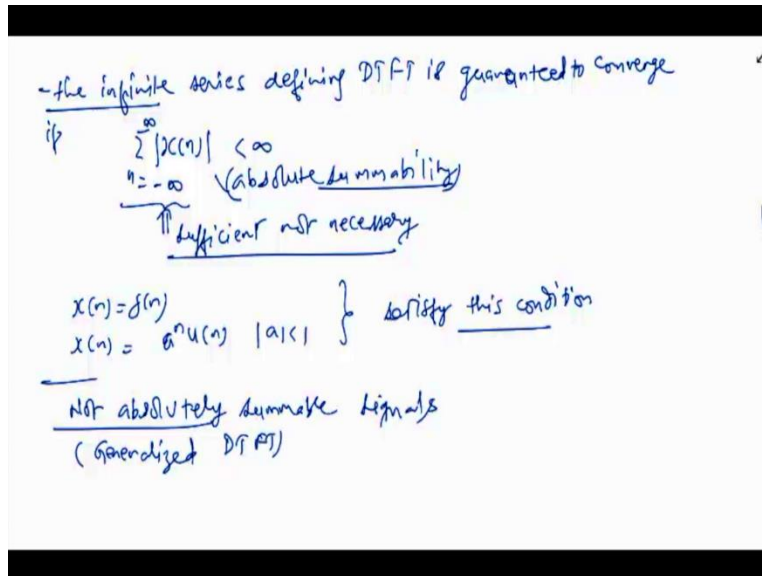 - the infinite series defining DTFT is guaranteed to converge
if ∑_{n=-∞}^{∞} |x(n)| < ∞
(absolute summability)
⇑ sufficient not necessary
x(n) = δ(n)
x(n) = a^n u(n) |a|<1 } satisfy this condition
Not absolutely summable signals
(Generalized DTFT)